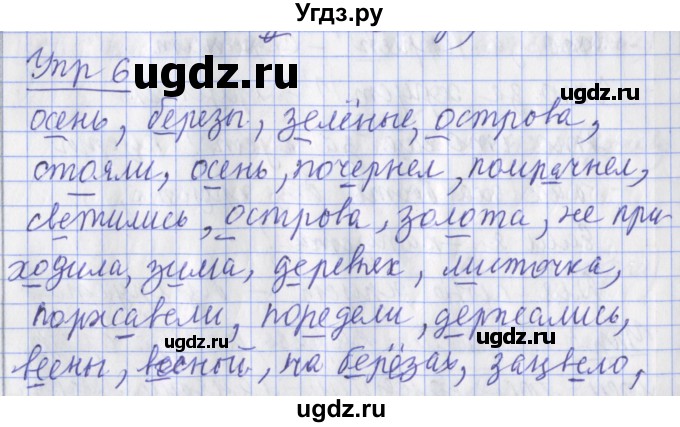 Угдз.ру
Упр 6
ugdz.ru
осень, березы, зелёные, острова,
стояли, осень, почернел, помрачнел,
светились, острова, золота, не при-
ходила, зима, деревьях, листочка,
ugdz.ru
ugdz.ru
поржавели, поредели, держались,
весны, весной, на берёзах, зацвело,
ugdz.ru
ugdz.ru